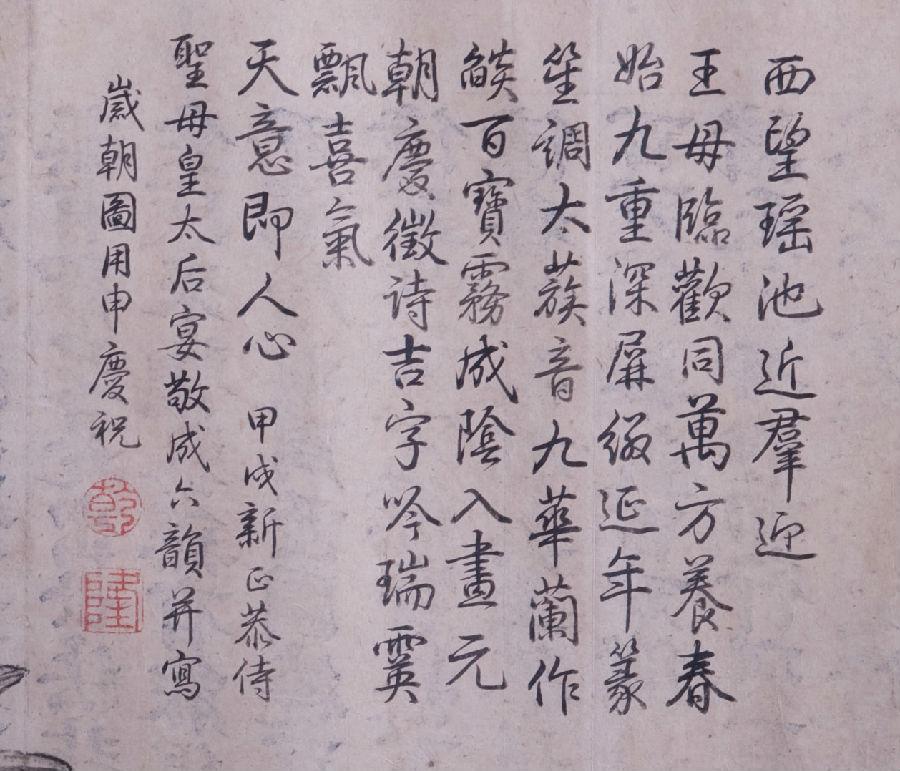 西望瑶池近羣迎
王母臨歡同萬方養春
始九重深屏綴延年篆
笙調太蔟音九華蘭作
燄百寶霧成陰入畫元
朝慶徵诗吉字吟瑞霙
飄喜氣
天意即人心 甲戌新正恭侍
聖母皇太后宴敬成六韻并寫
歲朝圖用申慶祝
乾
隆